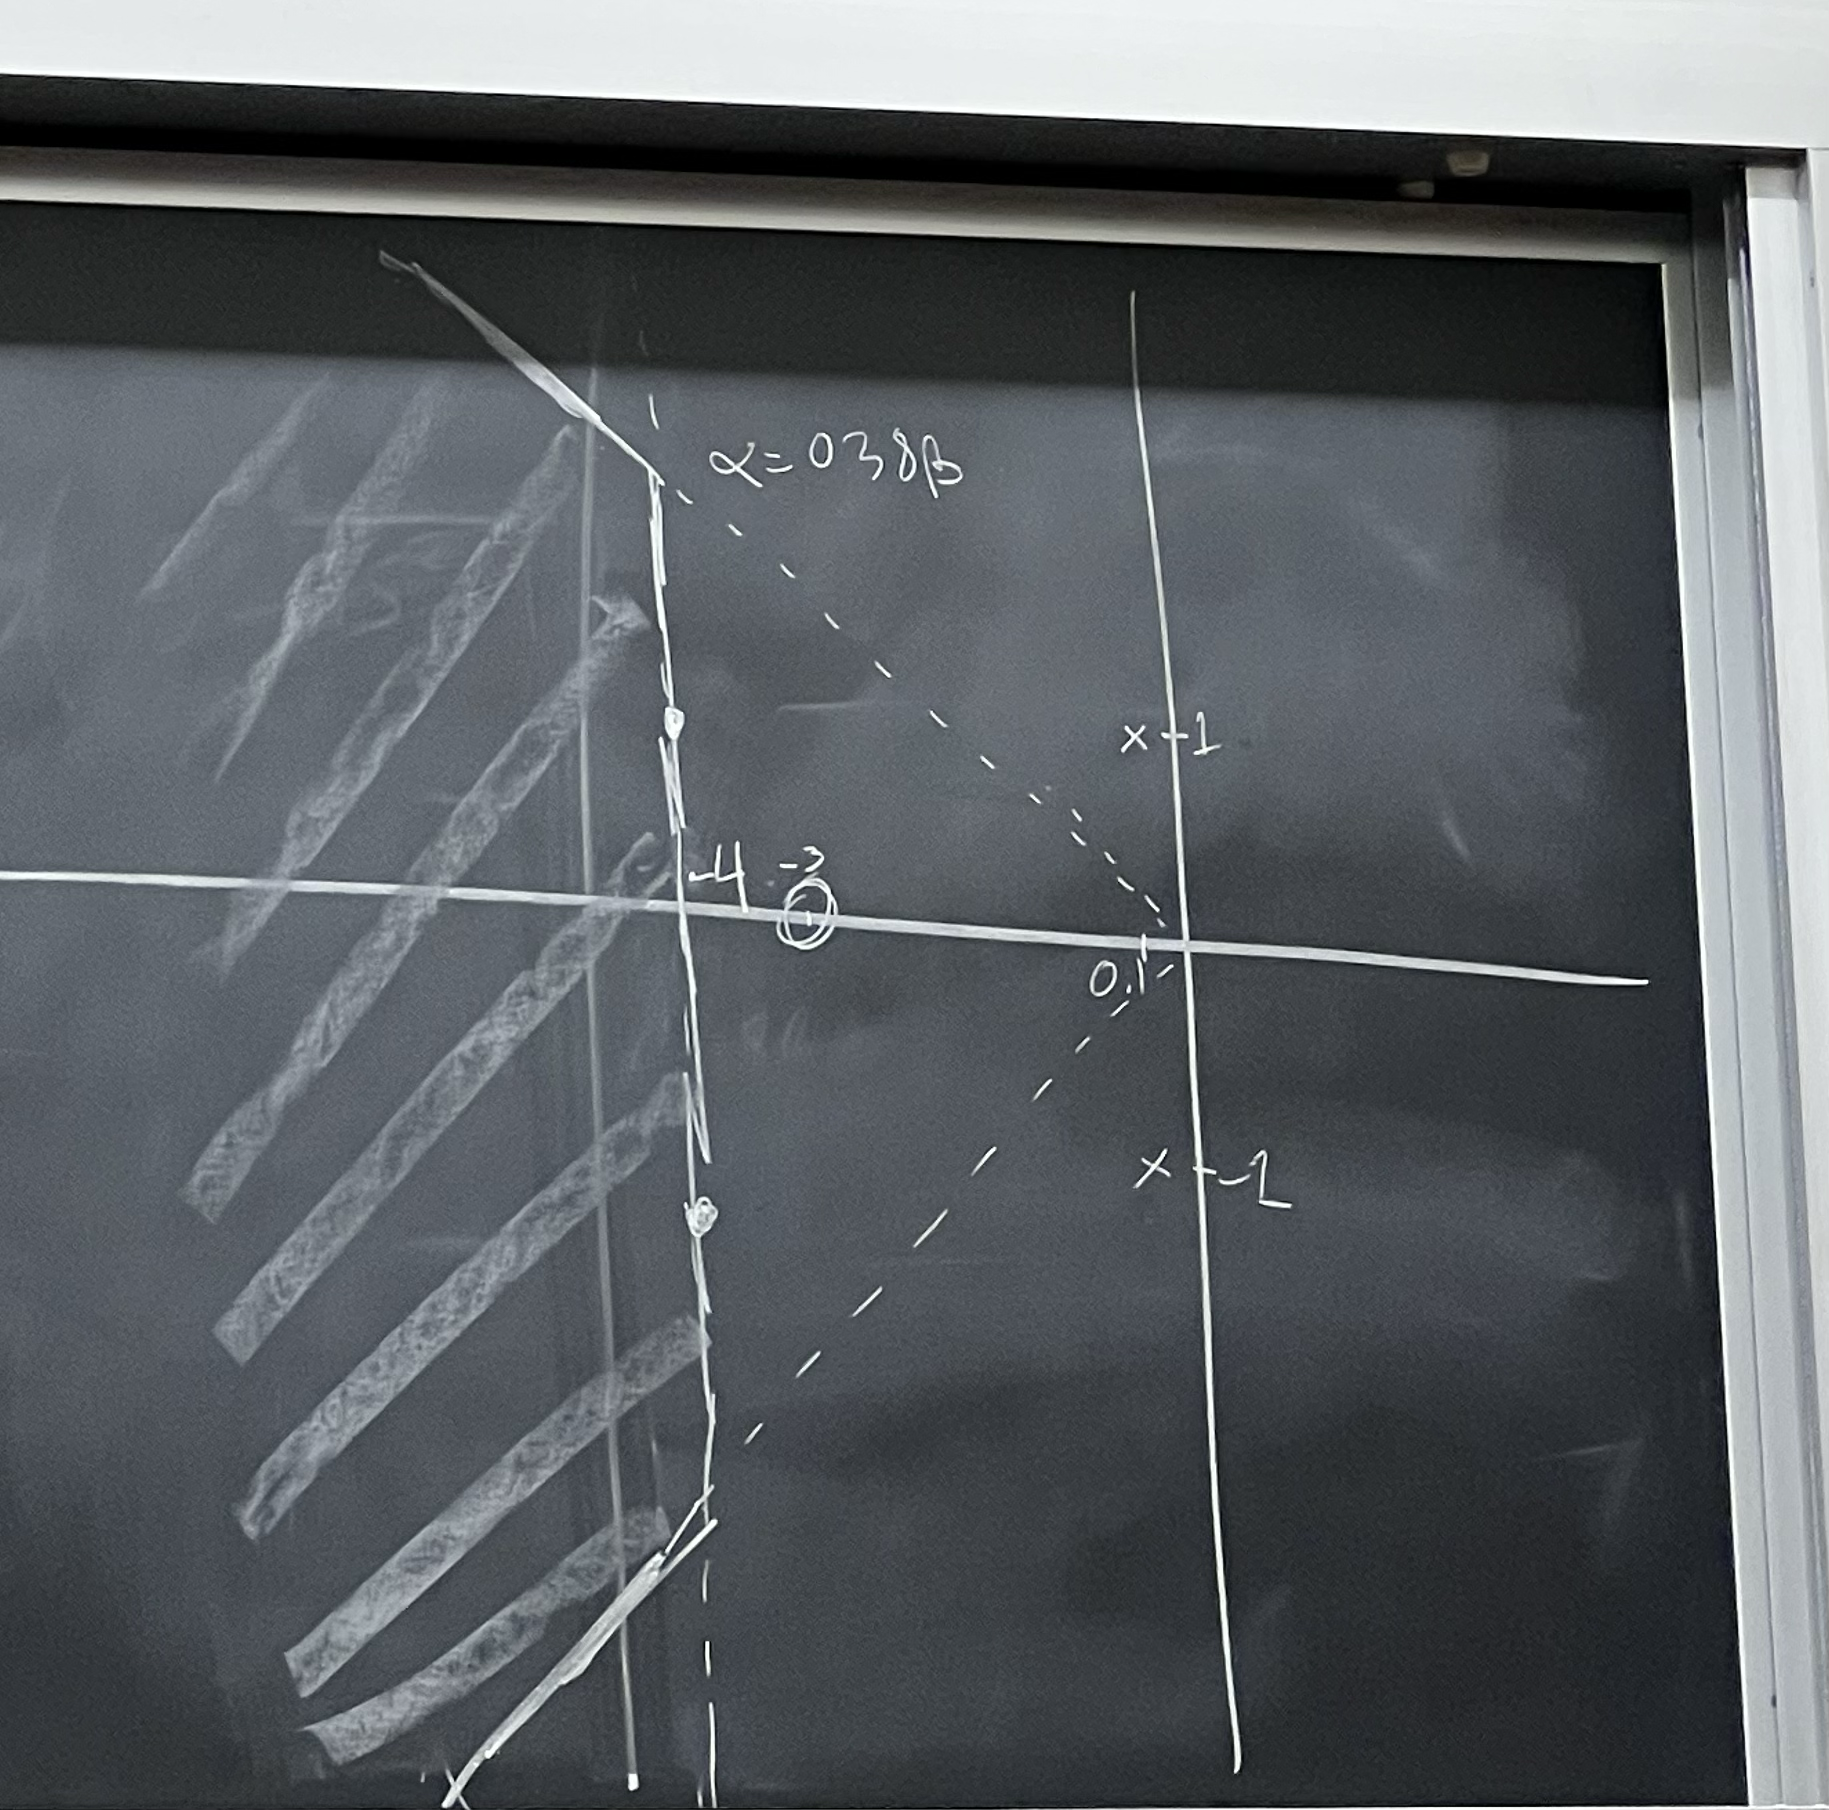 α = 038β
x 1
-4 -3
0.1
x -1